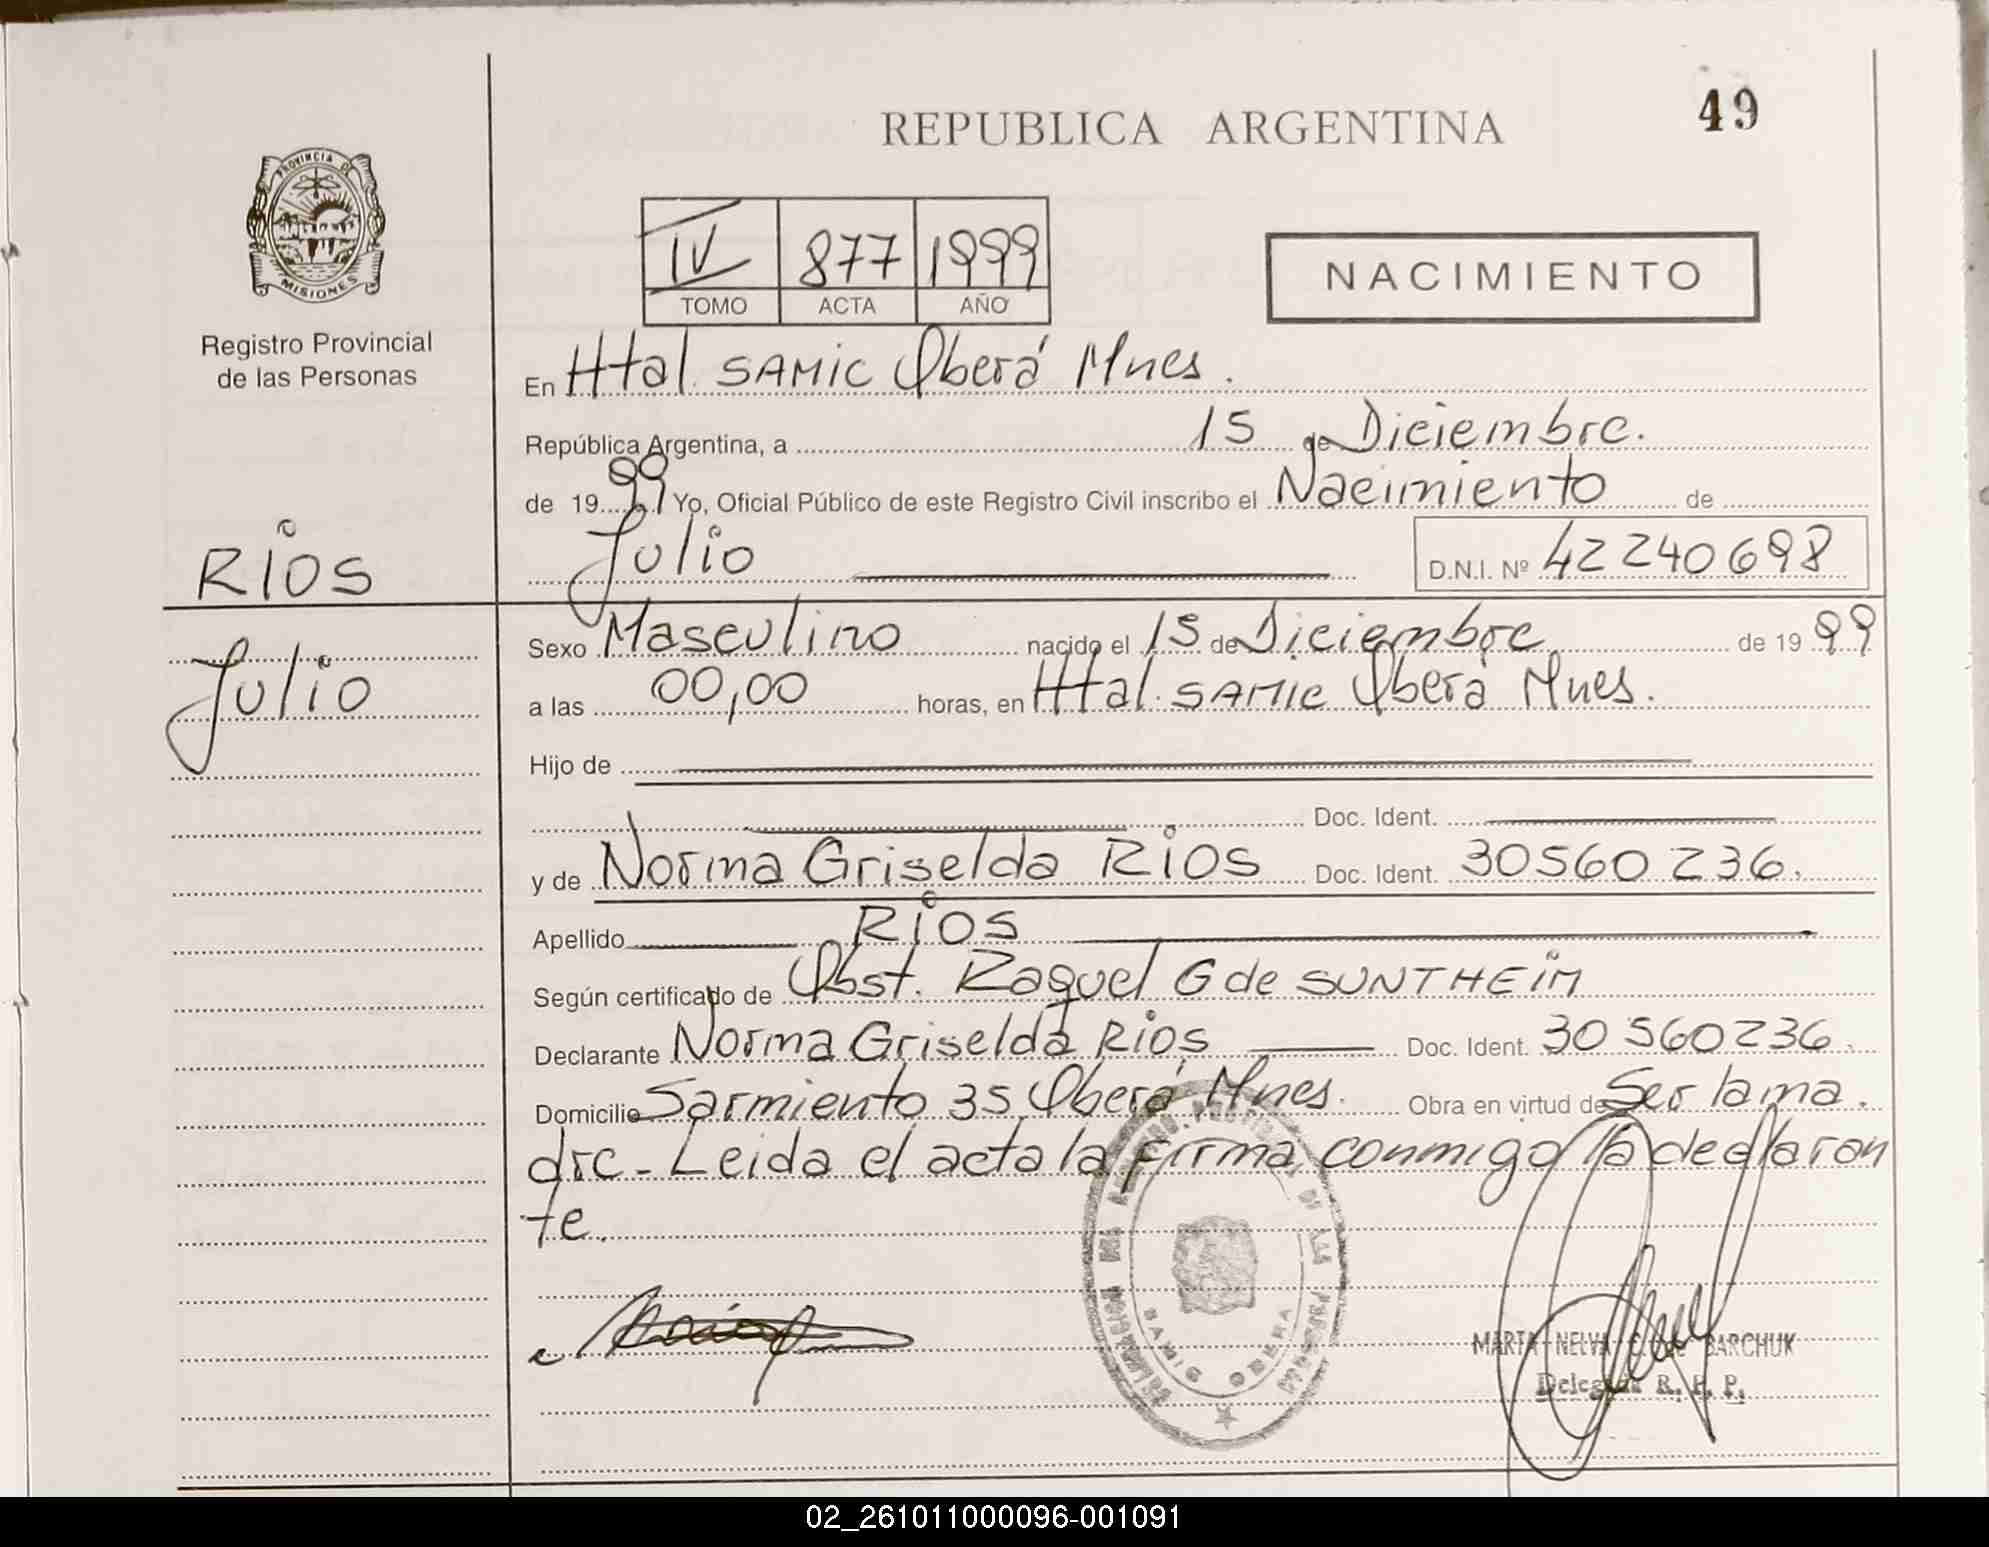 49
REPUBLICA ARGENTINA
PROVINCIA DE
MISIONES
Registro Provincial
de las Personas
IV 877 1999
TOMO ACTA AÑO
NACIMIENTO
En Htal. SAMIC Oberá Mnes.
República Argentina, a 15 de Diciembre.
de 19 99 Yo, Oficial Público de este Registro Civil inscribo el Nacimiento de
Julio D.N.I. Nº 42240698
RIOS
Julio
Sexo Masculino nacido el 15 de Diciembre de 19 99
a las 00,00 horas, en Htal. SAMIC Oberá Mnes.
Hijo de
Doc. Ident.
y de Norma Griselda RIOS Doc. Ident. 30560236.
Apellido RIOS
Según certificado de Obst. Raquel G de SUNTHEIM
Declarante Norma Griselda Rios Doc. Ident. 30560236.
Domicilio Sarmiento 35 Oberá Mnes. Obra en virtud de Ser la ma.
dre - Leida el acta la firma conmigo la declaran
te.
SAMIC OBERA
MARTA NELVA C. de BARCHUK
Delegada R. P. P.
02_261011000096-001091